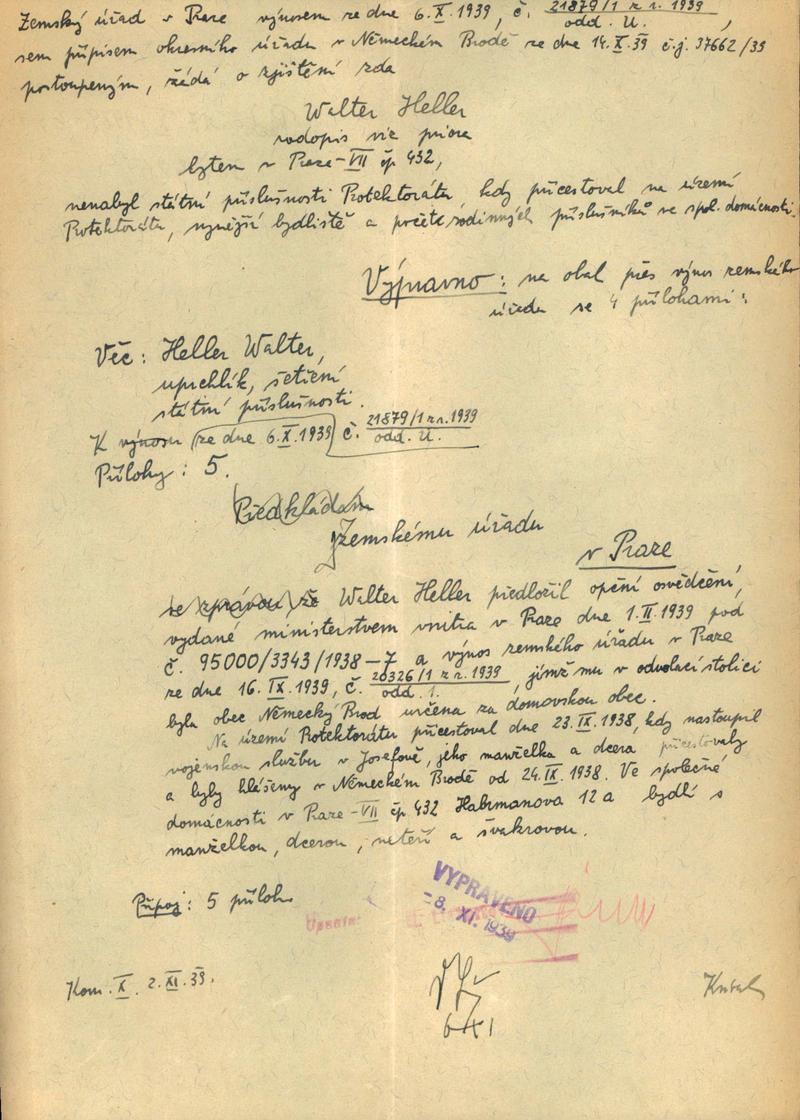 Zemský úřad v Praze výnosem ze dne 6.X.1939, č. 21879/1 z r. 1939
odd. U.,
sem přípisem okresního úřadu v Německém Brodě ze dne 14.X.39 č.j. 37662/39
postoupeným, žádá o zjištění zda
Walter Heller
rodopis viz priora
bytem v Praze-VII čp 432,
nenabyl státní příslušnosti Protektorátu, kdy přicestoval na území
Protektorátu, nynější bydliště a počet rodinných příslušníků ve spol. domácnosti.
Výpravno: na obal přes výnos zemského
úřadu se 4 přílohami:
Věc: Heller Walter,
uprchlík, šetření
státní příslušnosti.
K výnosu ze dne 6.X.1939 č. 21879/1 z r. 1939
odd. U.
Přílohy: 5.
Předkládám
Zemskému úřadu
v Praze
se zprávou, že Walter Heller předložil opční osvědčení,
vydané ministerstvem vnitra v Praze dne 1.II.1939 pod
č. 95000/3343/1938-7 a výnos zemského úřadu v Praze
ze dne 16.IX.1939, č. 20326/1 z r. 1939
odd. 1., jímž mu v odvolací stolici
byla obec Německý Brod určena za domovskou obec.
Na území Protektorátu přicestoval dne 23.IX.1938, kdy nastoupil
vojenskou službu v Josefově, jeho manželka a dcera přicestovaly
a byly hlášeny v Německém Brodě od 24.IX.1938. Ve společné
domácnosti v Praze-VII čp 432 Habrmanova 12a bydlí s
manželkou, dcerou, neteří a švakrovou.
Připoj: 5 příloh
VYPRAVENO
-8. XI. 1939
Kom. X. 2.XI.39.